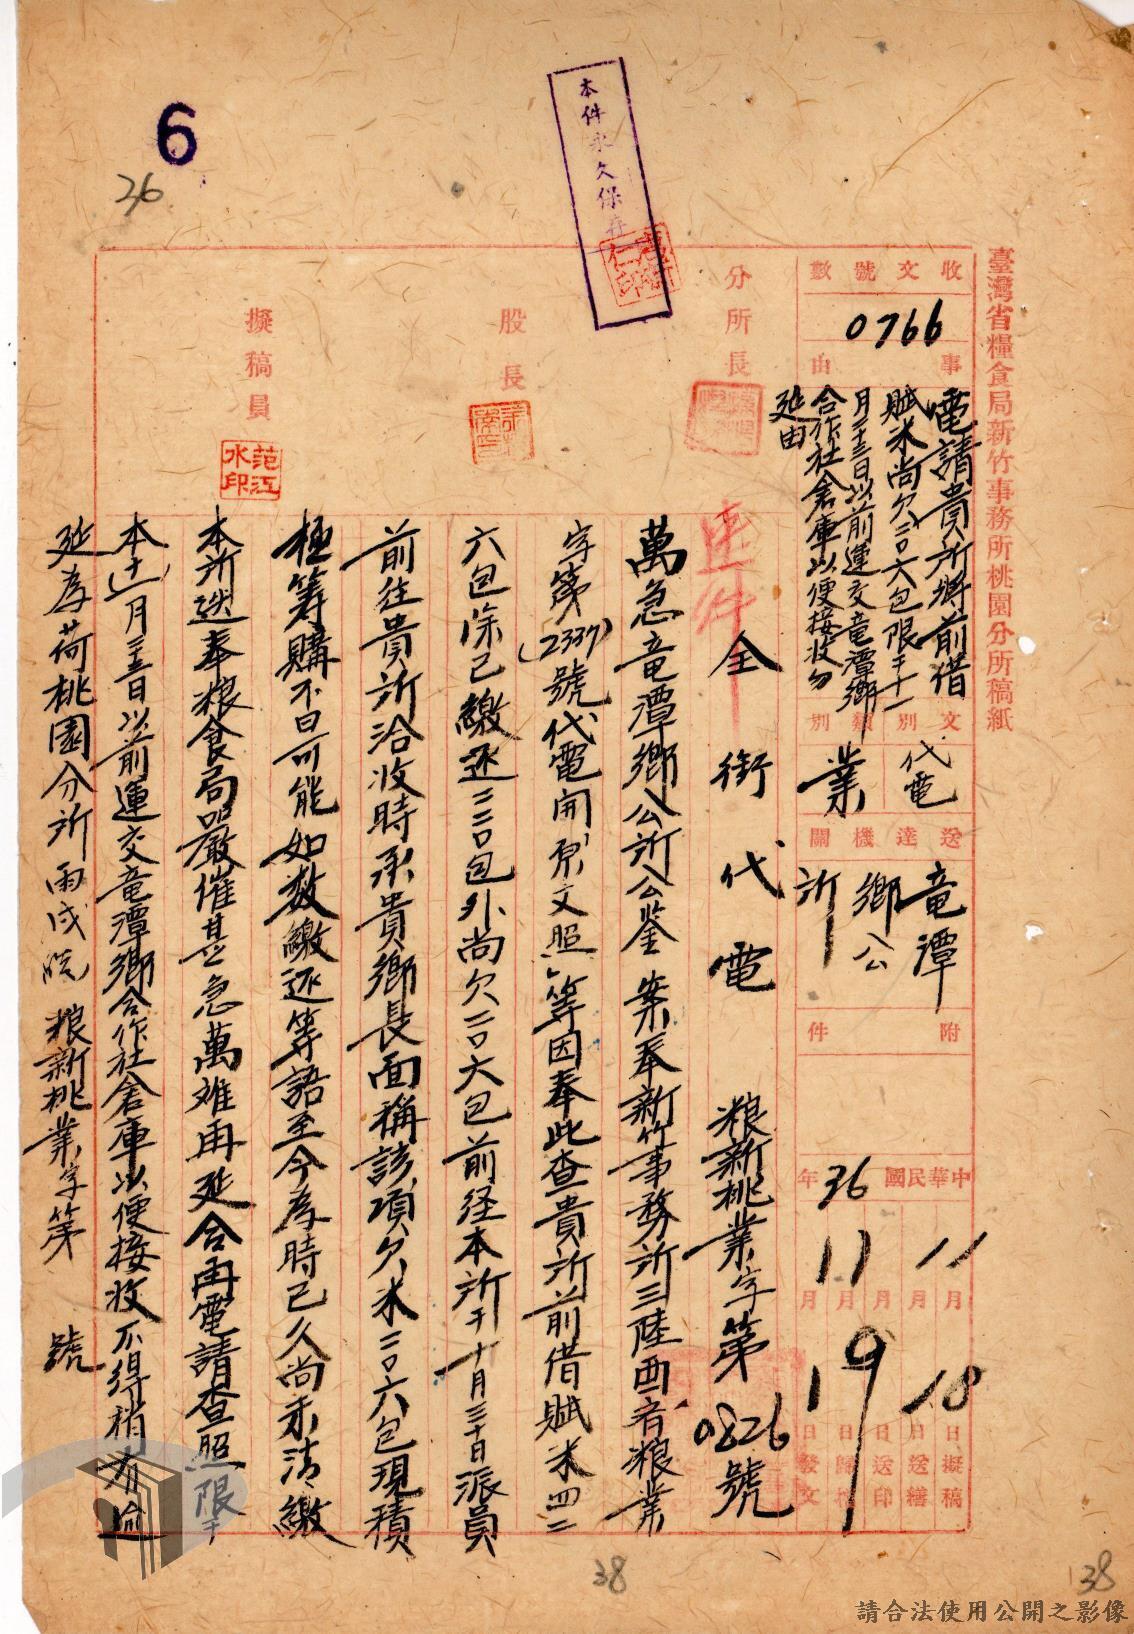 6
26
本件永久保存
臺灣省糧食局新竹事務所桃園分所稿紙
收文號數
0766
事由
電請貴所將前借
賦米尚欠二0六包限于十一
月二十三日以前運交竜潭鄉
合作社倉庫以便接收勿
延由
文別
代電
類別
業
送達機關
竜潭
鄉公
所
附件
中華民國36年
11月18日擬稿
月日送繕
月日送印
月日歸檔
11月19日發文
分所長
股長
擬稿員
范江
水印
速件
全銜代電 粮新桃業字第0826號
萬急竜潭鄉公所公鉴 案奉新竹事務所三陸酉 粮業
字第(2337)號代電開「原文照」等因奉此查貴所前借賦米四二
六包除已繳还二二0包外尚欠二0六包前経本所于十月三十日派員
前往貴所洽收時承貴鄉長面稱該項欠米二0六包現積
極筹購不日可能如数繳还等語至今為時已久尚未清繳
本所迭奉粮食局嚴催甚急萬难再延合再電請查照限于
本(十一)月二十三日以前運交竜潭鄉合作社倉庫以便接收不得稍有逾
延為荷桃園分所 戌 粮新桃業字第 號
38
38
請合法使用公開之影像